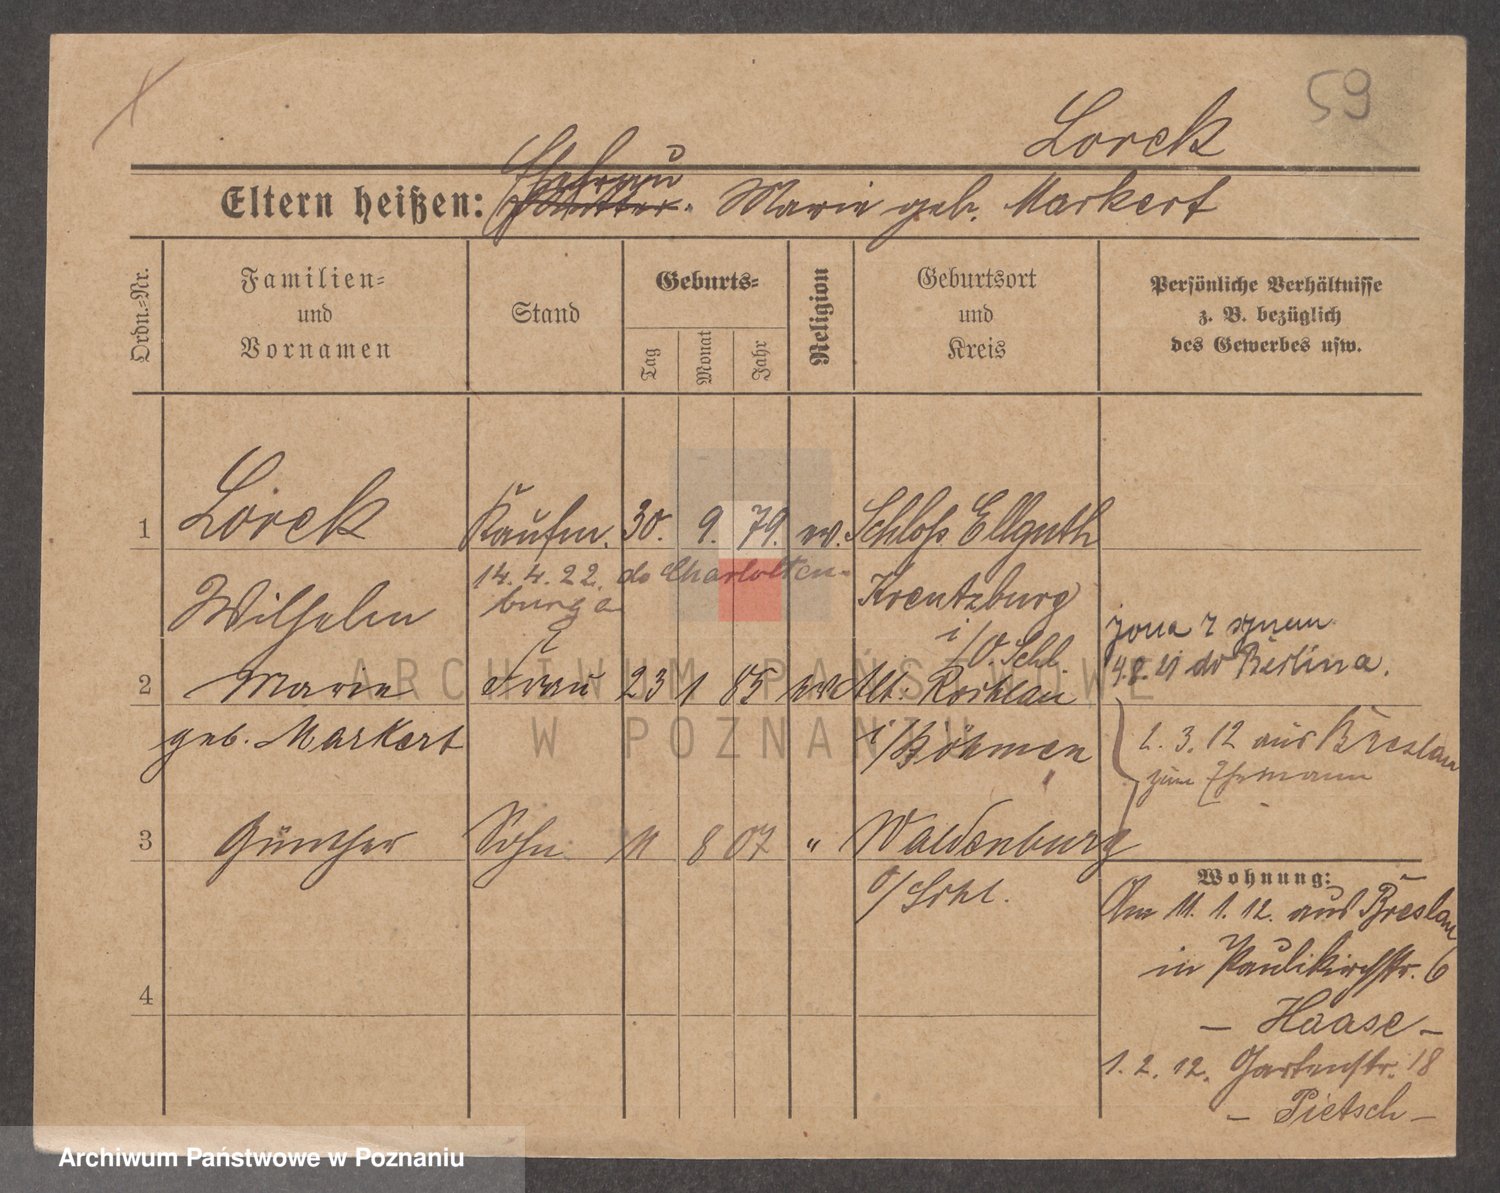 59
Lorck
Ehefrau
Eltern heißen: Mutter. Marie geb. Markert
Ordn.=Nr.
Familien=
und
Vornamen
Stand
Geburts=
Tag
Monat
Jahr
Religion
Geburtsort
und
Kreis
Persönliche Verhältnisse
z. B. bezüglich
des Gewerbes usw.
1 Lorck Kaufm. 30. 9. 79. ev. Schloß Ellguth
14. 4. 22. do Charlotten-
burga
Wilhelm Kreutzburg
i/O. Schl.
żona z synem
4.8.21 do Berlina.
2 Marie Frau 23 1 85 ev Alt-
geb. Markert i/Böhmen
2. 3. 12 aus Breslau
zum Ehemann
3 Günther Sohn 11 8 07 " Waldenburg
/Schl.
Wohnung:
Am 11. 1. 12. aus Breslau
in Paulikirchstr. 6
- Haase -
1. 2. 12. Gartenstr. 18
- Pietsch -
4
ARCHIWUM PAŃSTWOWE
W POZNANIU
Archiwum Państwowe w Poznaniu